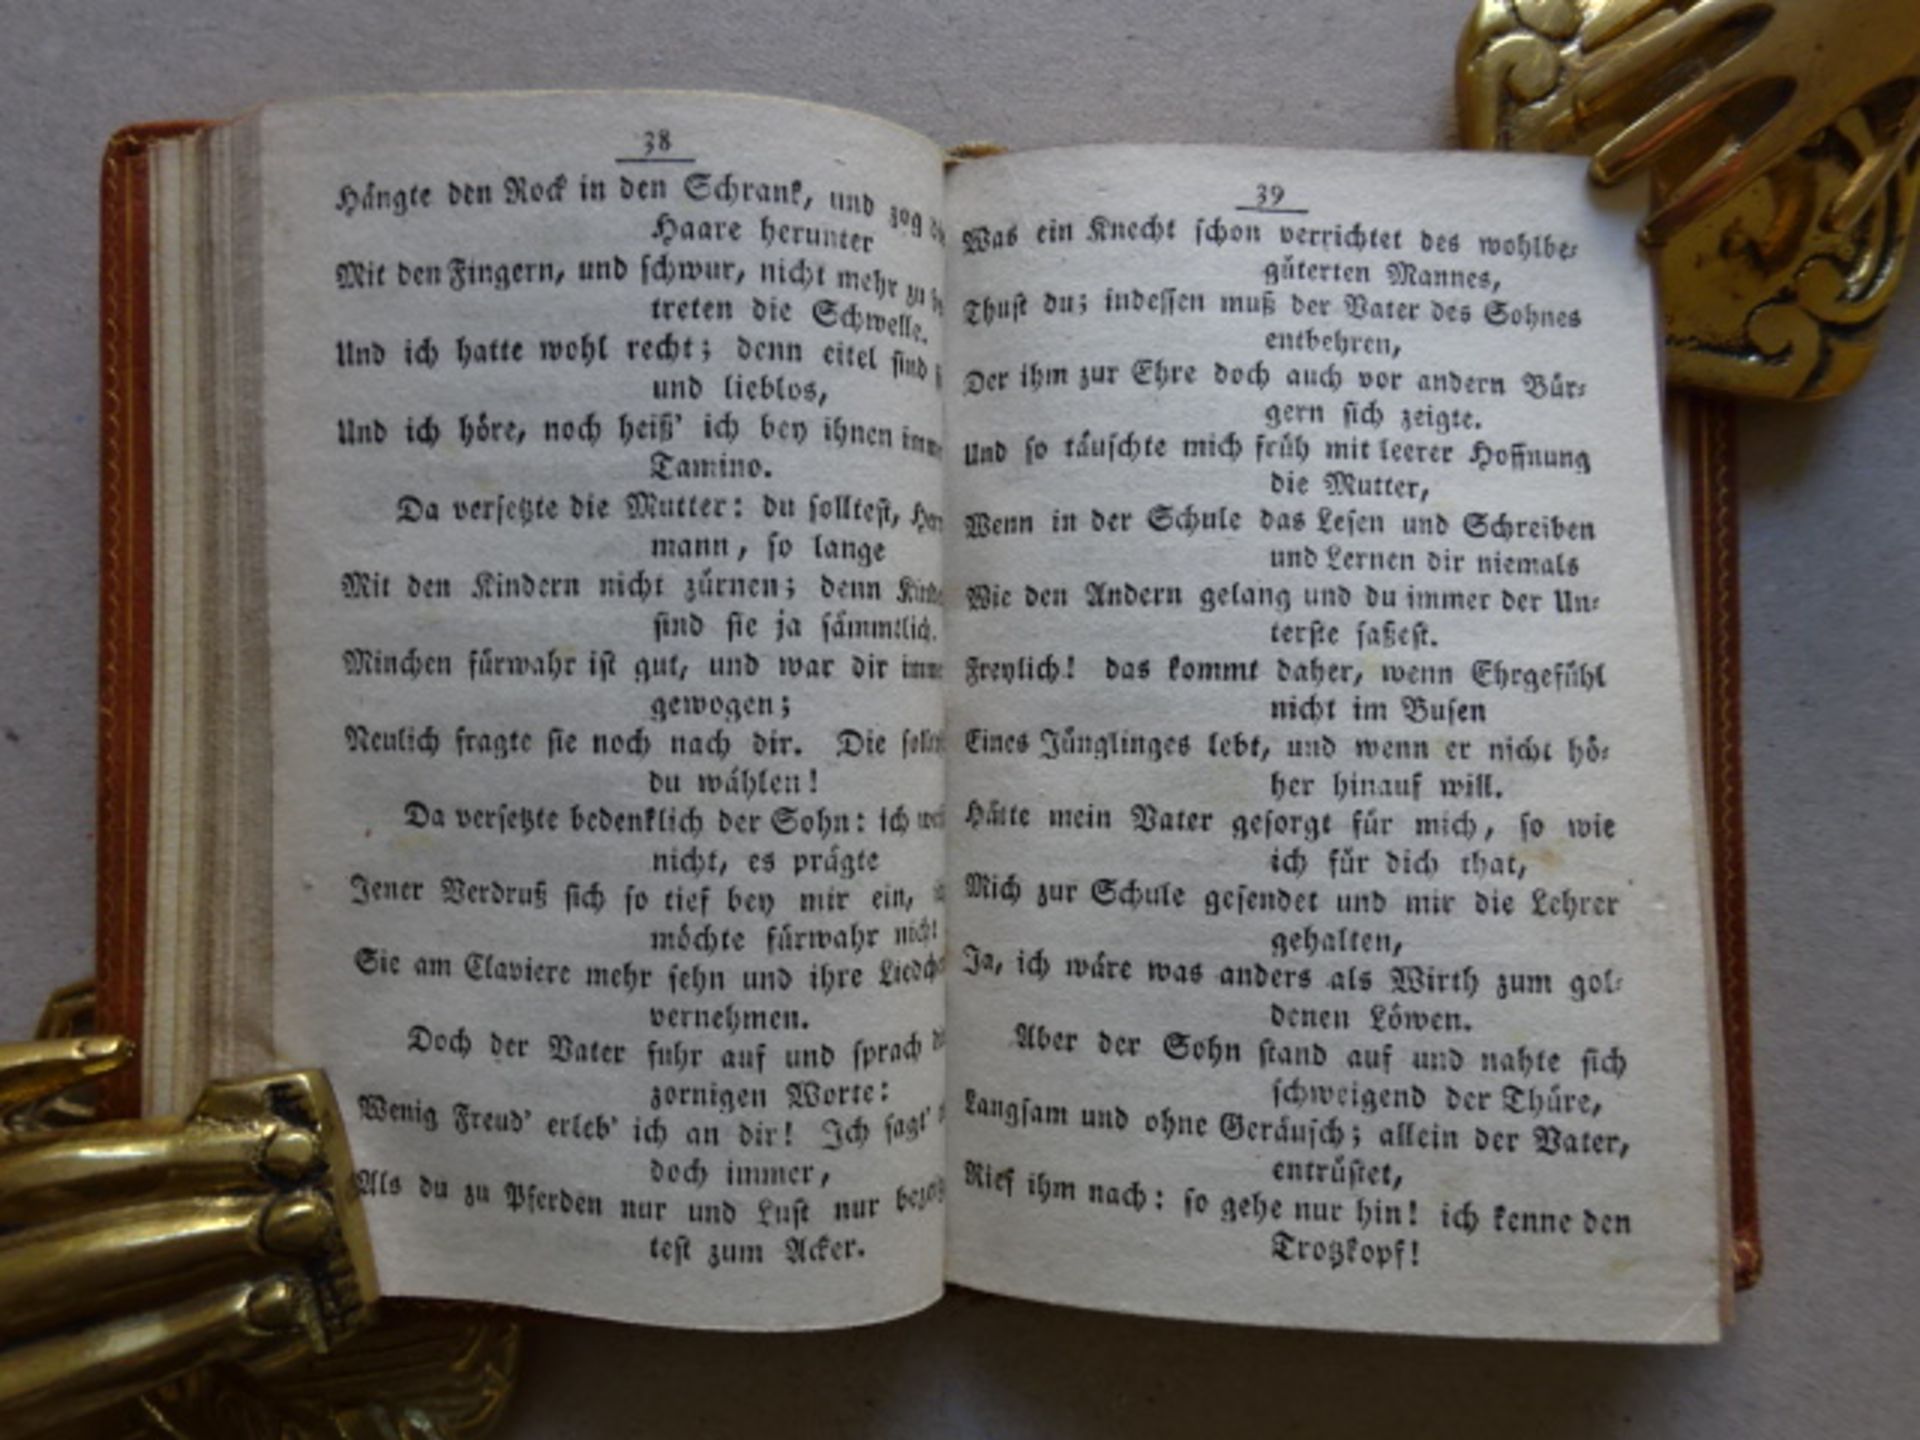 38
Hängte den Rock in den Schrank, und zog
Haare herunter
Mit den Fingern, und schwur, nicht mehr zu
treten die Schwelle.
Und ich hatte wohl recht; denn eitel sind
und lieblos,
Und ich höre, noch heiß' ich bey ihnen
Tamino.
Da versetzte die Mutter: du solltest, Her
mann, so lange
Mit den Kindern nicht zürnen; denn
sind sie ja sämmtlich.
Minchen fürwahr ist gut, und war dir
gewogen;
Neulich fragte sie noch nach dir. Die
du wählen!
Da versetzte bedenklich der Sohn: ich
nicht, es prägte
Jener Verdruß sich so tief bey mir ein,
möchte fürwahr nicht
Sie am Claviere mehr sehn und ihre
vernehmen.
Doch der Vater fuhr auf und sprach
zornigen Worte:
Wenig Freud' erleb' ich an dir! Ich sagt'
doch immer,
Als du zu Pferden nur und Lust nur
test zum Acker.
39
Was ein Knecht schon verrichtet des wohlbe-
güterten Mannes,
Thust du; indessen muß der Vater des Sohnes
entbehren,
Der ihm zur Ehre doch auch vor andern Bür-
gern sich zeigte.
Und so täuschte mich früh mit leerer Hoffnung
die Mutter,
Wenn in der Schule das Lesen und Schreiben
und Lernen dir niemals
Wie den Andern gelang und du immer der Un-
terste saßest.
Freylich! das kommt daher, wenn Ehrgefühl
nicht im Busen
Eines Jünglinges lebt, und wenn er nicht hö-
her hinauf will.
Hätte mein Vater gesorgt für mich, so wie
ich für dich that,
Mich zur Schule gesendet und mir die Lehrer
gehalten,
Ja, ich wäre was anders als Wirth zum gol-
denen Löwen.
Aber der Sohn stand auf und nahte sich
schweigend der Thüre,
Langsam und ohne Geräusch; allein der Vater,
entrüstet,
Rief ihm nach: so gehe nur hin! ich kenne den
Trotzkopf!